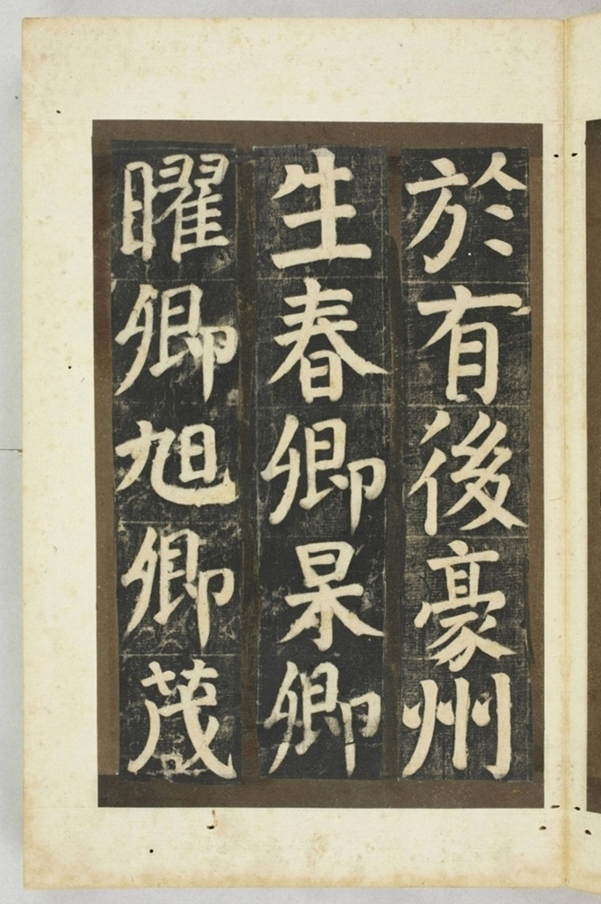 於有後豪州
生春卿杲卿
曜卿旭卿茂